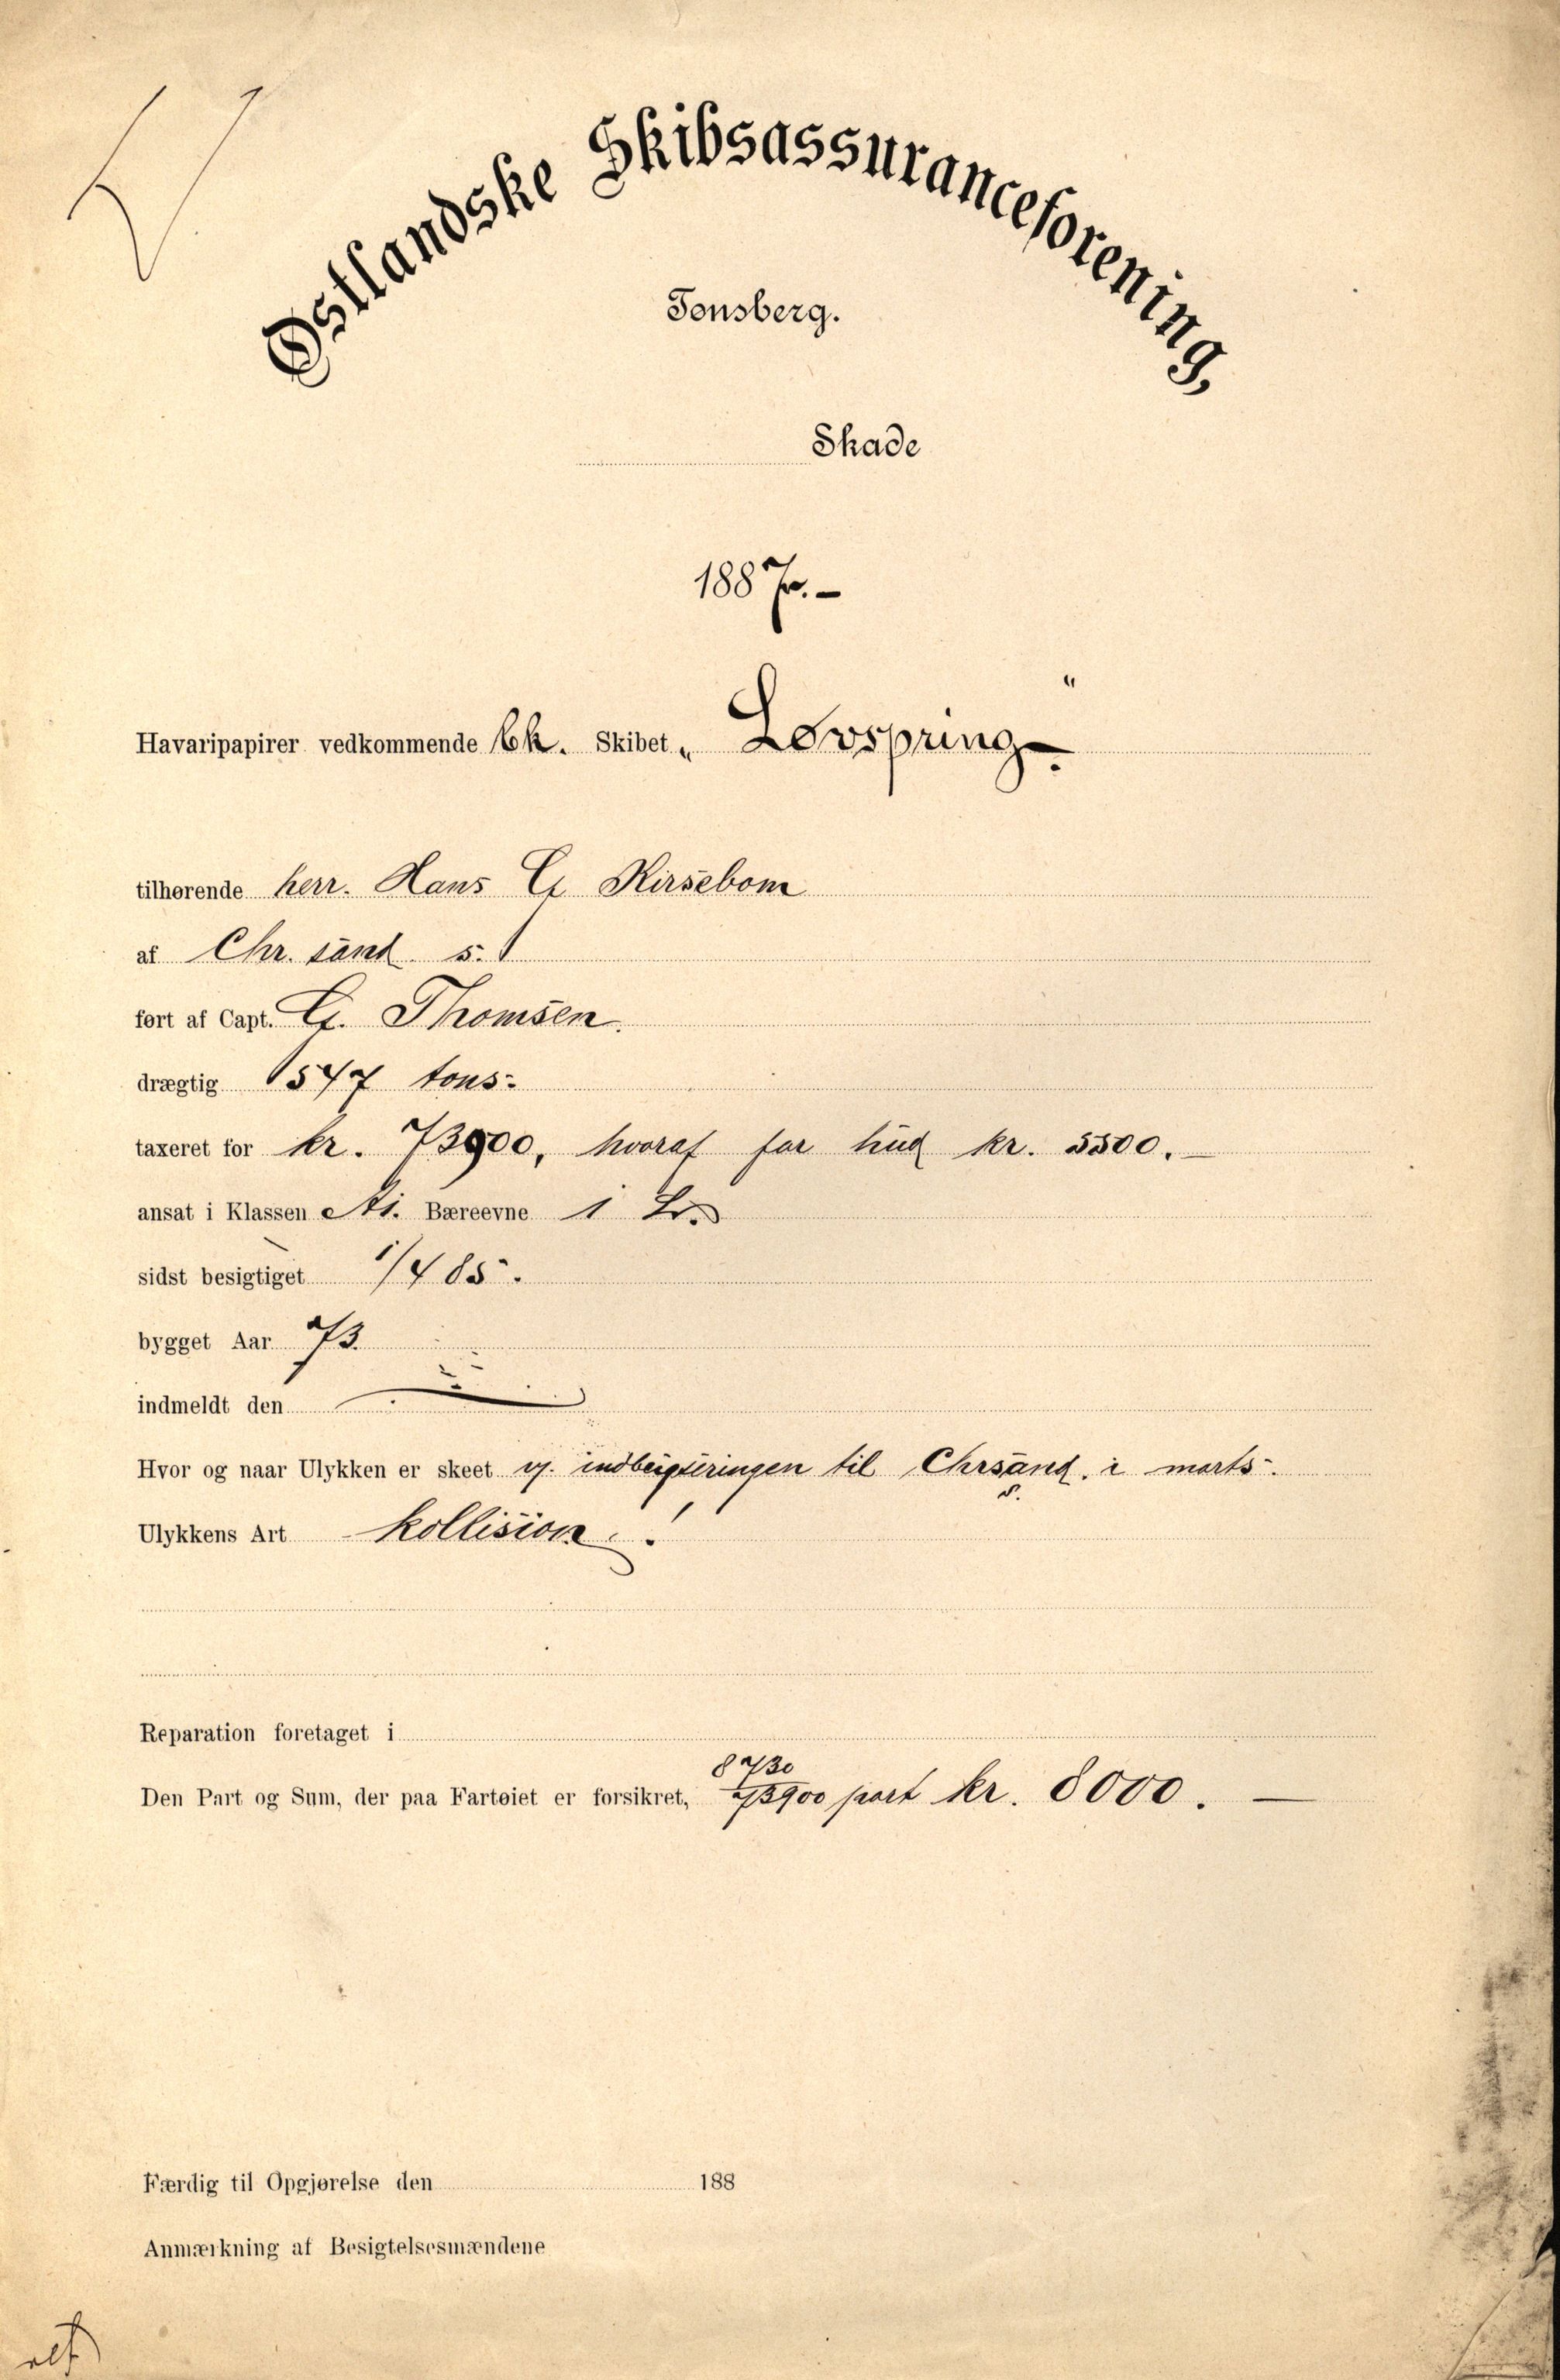 Østlandske Skibsassuranceforening,
Tønsberg.
Skade
1887.-
Havaripapirer vedkommende bk. Skibet „Løvspring“
tilhørende herr. Hans Kirsebom
af Chr. sand s.
ført af Capt. Thomsen.
drægtig 547 tons.
taxeret for kr. 73900, hvoraf for hud kr. 5500.-
ansat i Klassen A1. Bæreevne 1
sidst besigtiget 1/4 85.
bygget Aar 73
indmeldt den
Hvor og naar Ulykken er skeet v. indbugseringen til Chrsand s. i marts.
Ulykkens Art kollision.
Reparation foretaget i
Den Part og Sum, der paa Fartøiet er forsikret, 8730/73900 part kr. 8000.-
Færdig til Opgjørelse den 188
Anmærkning af Besigtelsesmændene